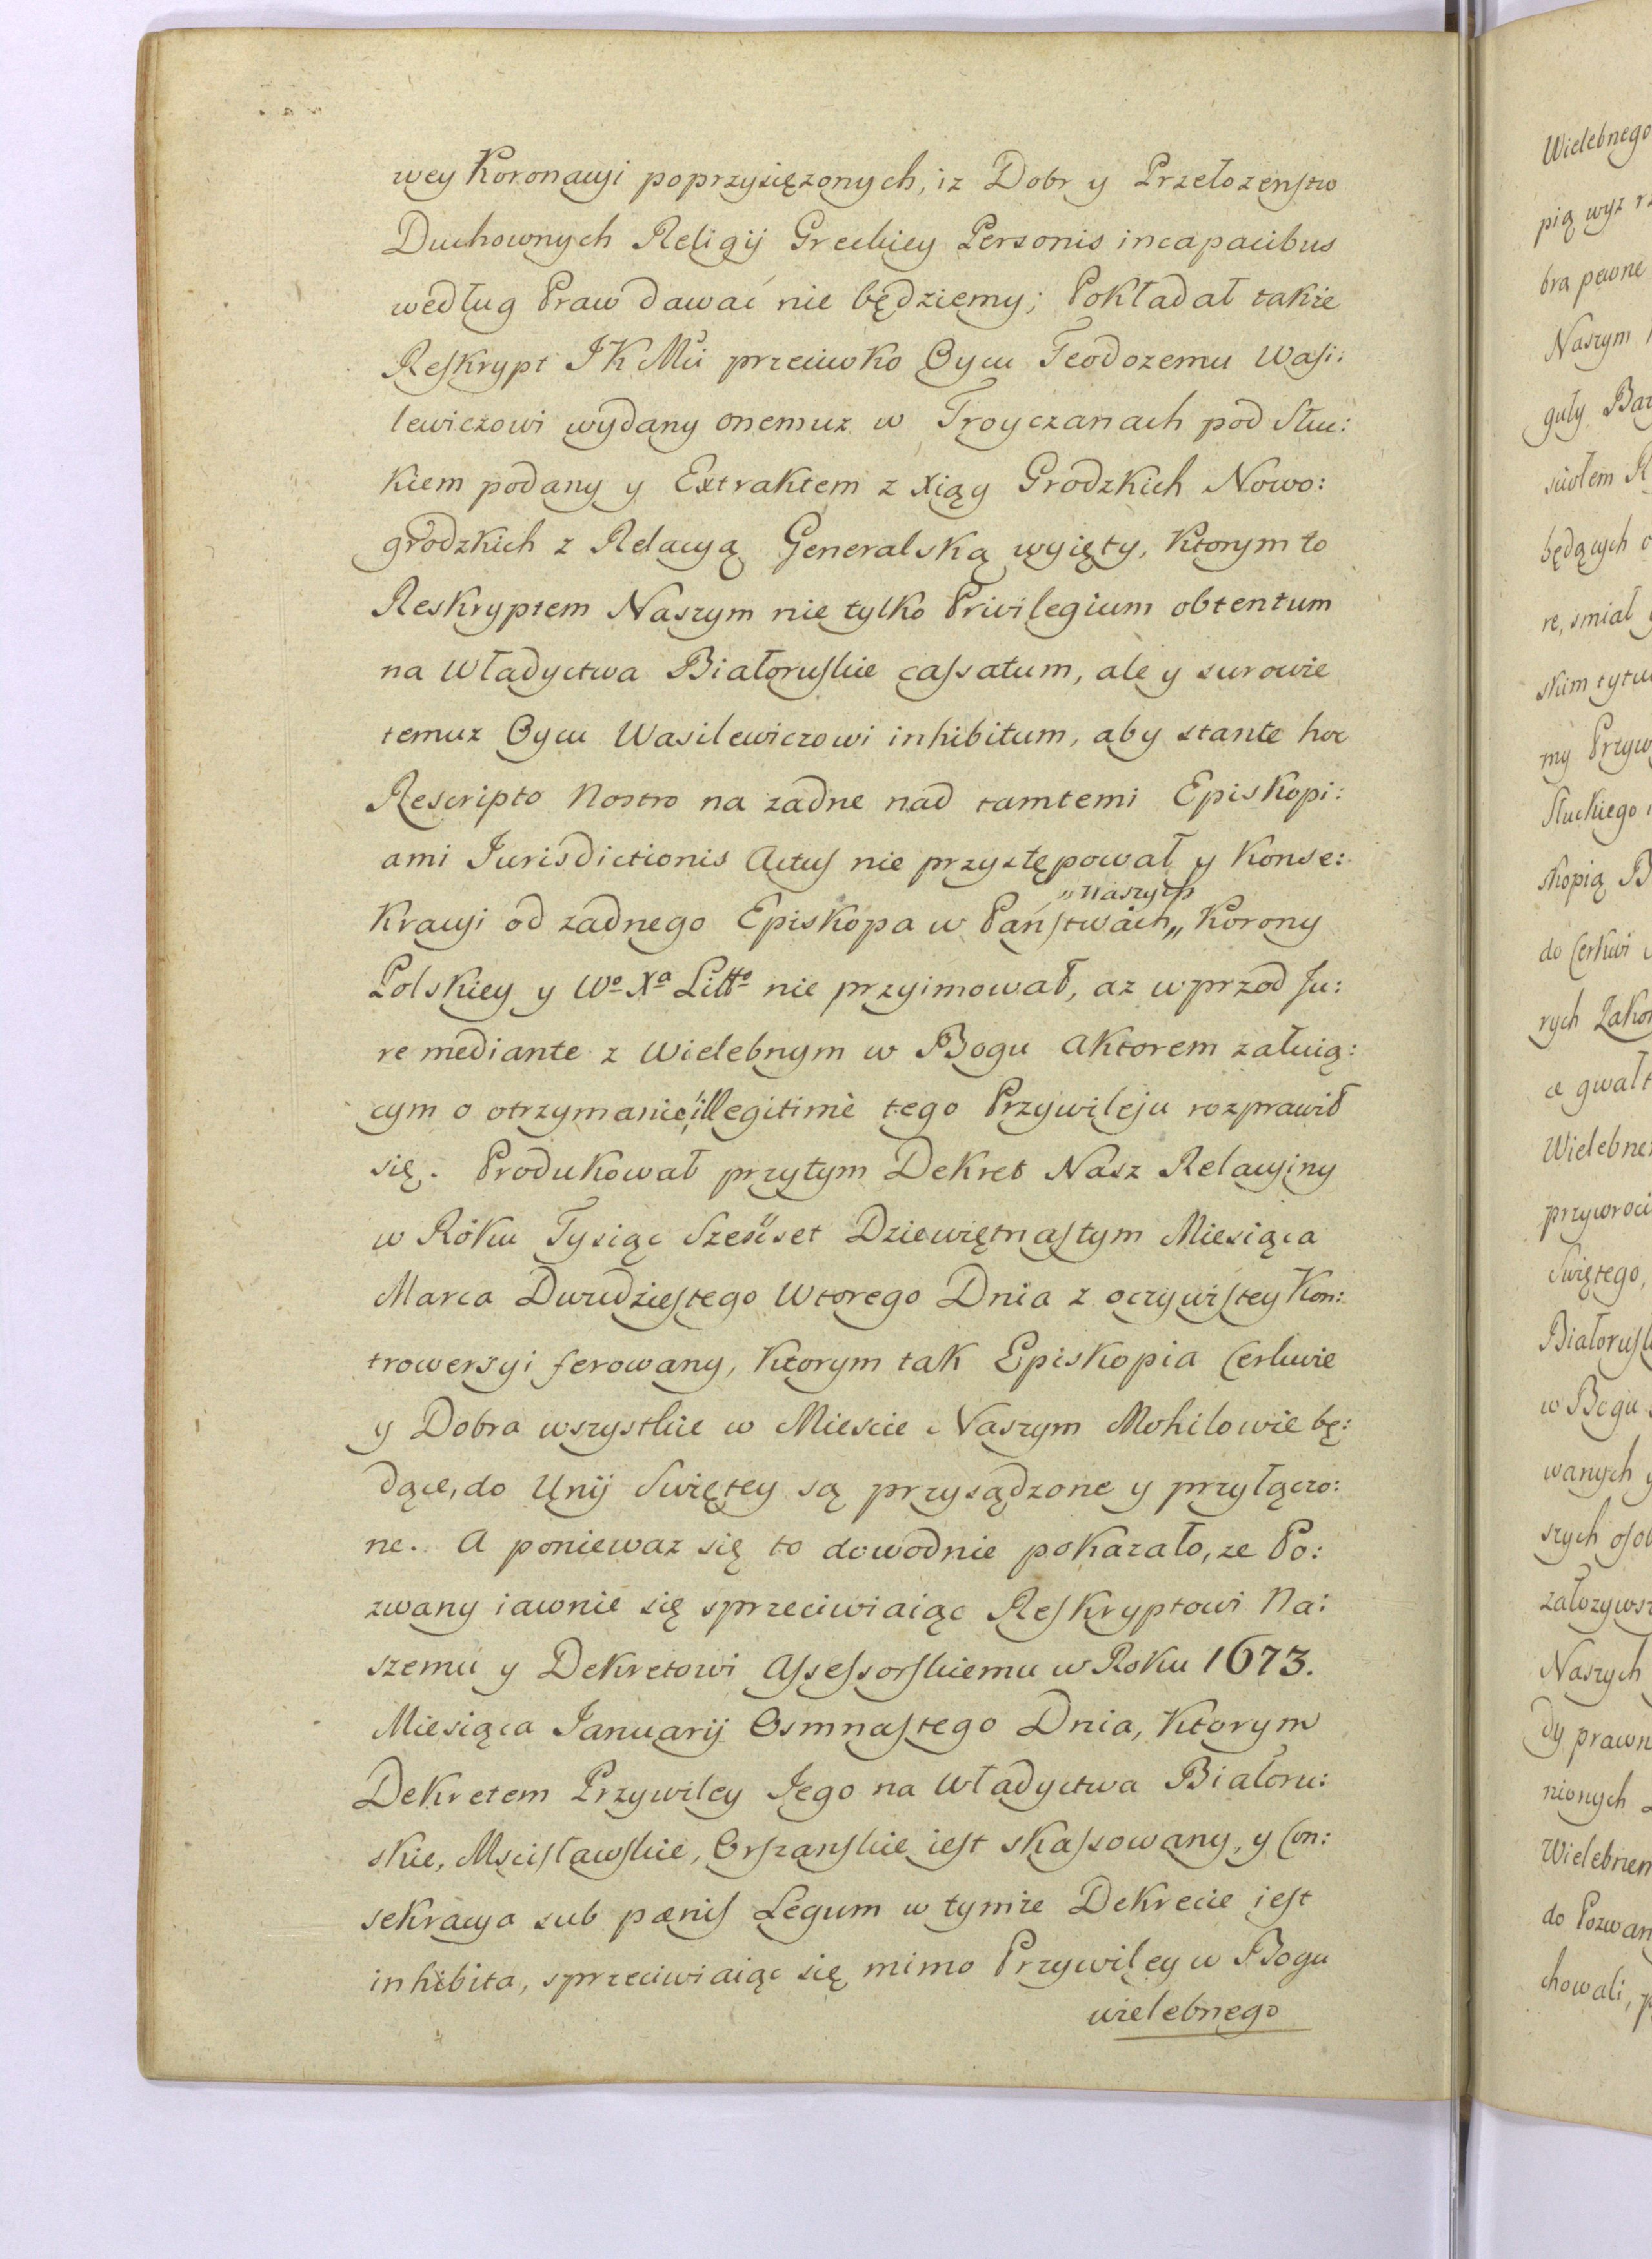 wey Koronacyi poprzysięzonych, iz Dobr y Przełozenstw
Duchownych Religij Greckiey Personis incapacibus
według Praw dawać nie będziemy; Pokładał takze
Reskrypt JK Mci przeciwko Oycu Teodozemu Wasi:
lewiczowi wydany onemuz w Troyczanach pod Słuc:
kiem podany y Extraktem z Xiąg Grodzkich Nowo:
grodzkich z Relacyą Generalską wyięty, Ktorym to
Reskryptem Naszym nie tylko Privilegium obtentum
na Władyctwa Białoruskie cassatum, ale y surowie
temuz Oycu Wasilewiczowi inhibitum, aby stante hoc
Rescripto Nostro na zadne nad tamtemi Episkopi:
ami Jurisdictionis Actus nie przystępował y Konse:
„Naszych
Kracyi od zadnego Episkopa w Państwach„ Korony
Polskiey y Wo Xa Litto nie przyimował, az wprzod Ju:
re mediante z Wielebnym w Bogu Aktorem załuią:
cym o otrzymanie illegitimè tego Przywileju rozprawił
się. Produkował przytym Dekret Nasz Relacyiny
w Roku Tysiąc Sześćset Dziewiętnastym Miesiąca
Marca Dwudziestego Wtorego Dnia z oczywistey Kon:
trowersyi ferowany, Ktorym tak Episkopia Cerkwie
y Dobra wszystkie w Miescie Naszym Mohilowie bę:
dące, do Unij Swiętey są przysądzone y przyłączo:
ne. A poniewaz się to dowodnie pokazało, ze Po:
zwany iawnie się sprzeciwiaiąc Reskryptowi Na:
szemu y Dekretowi Assessorskiemu w Roku 1673.
Miesiąca Januarij Osmnastego Dnia, Ktorym
Dekretem Przywiley Jego na Władyctwa Białoru:
skie, Mscisławskie, Orszanskie iest skassowany, y Con:
sekracya sub pœnis Legum w tymze Dekrecie iest
inhibita, sprzeciwiaiąc się mimo Przywiley w Bogu
wielebnego
Wielebnego
pią wyz
bra pewne
Naszym
guły
będących
re, smiał
skim
my
Słuckiego
skopią
do Cerkwi
rych
ce gwałt
Swiętego,
w Bogu
wanych
szych
Naszych
dy
nionych
do
chowali,